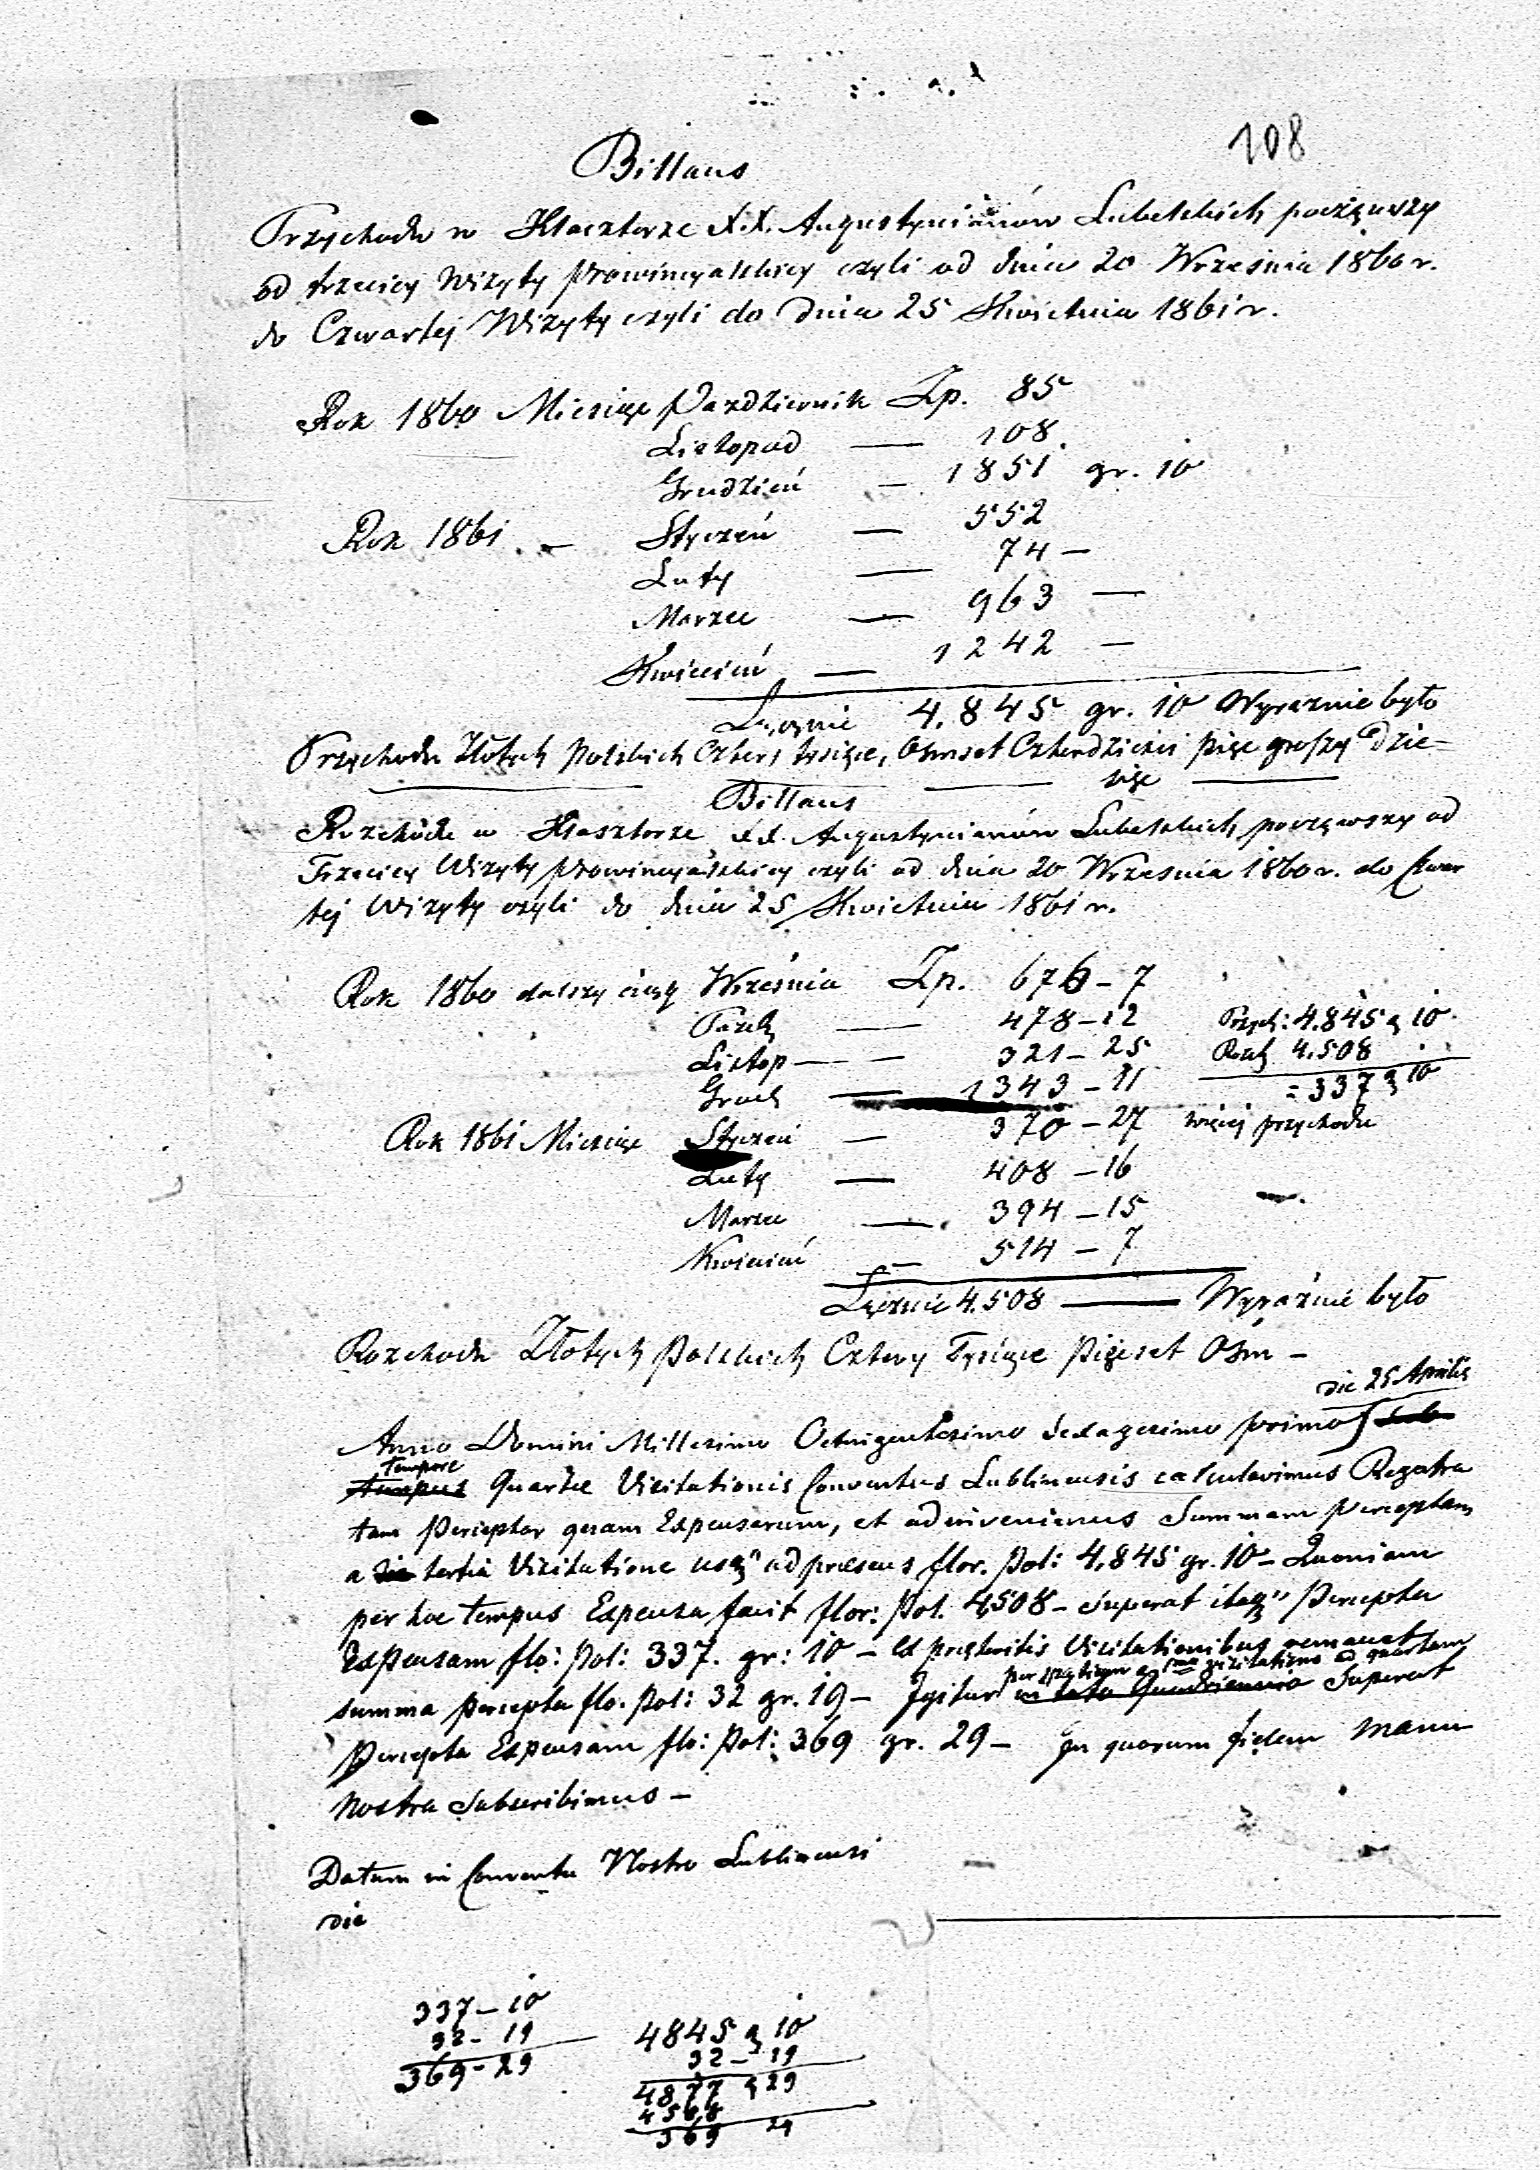 108
Billans
Przychodu w Klasztorze X.X. Augustynianów Lubelskich, począwszy
od trzeciey Wizyty Prowincyalskiey czyli od dnia 20 Września 1860 r.
do Czwartej Wizyty czyli do Dnia 25 Kwietnia 1861 r.
Rok 1860 Miesiąc Pazdziernik Zp. 85
Listopad — 108.
Grudzień — 1851 gr. 10
Rok 1861 — Styczeń — 552
Luty — 74 —
Marzec — 963 —
Kwiecień — 1242 —
Łącznie 4.845 gr. 10 Wyraznie było
Przychodu Złotych Polskich Cztery tysiące, Osmset Czterdzieści pięc groszy dzie=
sięc
Billans
Rozchodu w Klasztorze X.X. Augustynianów Lubelskich, począwszy od
Trzeciey Wizyty Prowincyalskiey czyli od dnia 20 Września 1860 r. do Czwar
tej Wizyty czyli do dnia 25 Kwietnia 1861 r.
Rok 1860 dalszy ciąg Września Zp. 676 - 7
Pazdz — 478 - 12 Przych: 4.845 g 10
Listop — — 321 - 25 Rozch 4.508
Grud — 1343 - 11 = 337 g 10
Rok 1861 Miesiąc Styczeń — 370 - 27 więcej przychodu
Luty — 408 - 16
Marzec — 394 - 15
Kwiecień — 514 - 7
Łącznie 4.508 — Wyraźnie było
Rozchodu Złotych Polskich Cztery Tysiące Pięcset Osm -
die 25 Aprilis
Anno Domini Millesimo Octingentesimo sexagesimo primo
tempore
tempus Quartae Visitationis Conventus Lublinensis calculavimus Regestra
tam Perceptor quam Expensarum, et adinvenimus Summam perceptam
a die tertia Visitatione usq" ad praesens flor. Pol: 4.845 gr. 10 - Quoniam
per hoc tempus Expensa facit flor: Pol. 4508 - superat itaq" Percepta
Expensam flo: Pol: 337. gr: 10 - ex praeteritis Visitationibus remanet
per spatium a 1ma visitatione ad quartam
summa percepta flo. Pol: 32 gr. 19 - Igitur in toto Quadriennio Superat
Percepta Expensam flo: Pol: 369 gr. 29 - In quorum fidem Manu
Nostra Subscribimus -
Datum in Conventu Nostro Lublinensi
die
337 - 10
32 - 19
369 - 29
4845 g 10
32 - 19
4877 g 29
4508
369 29